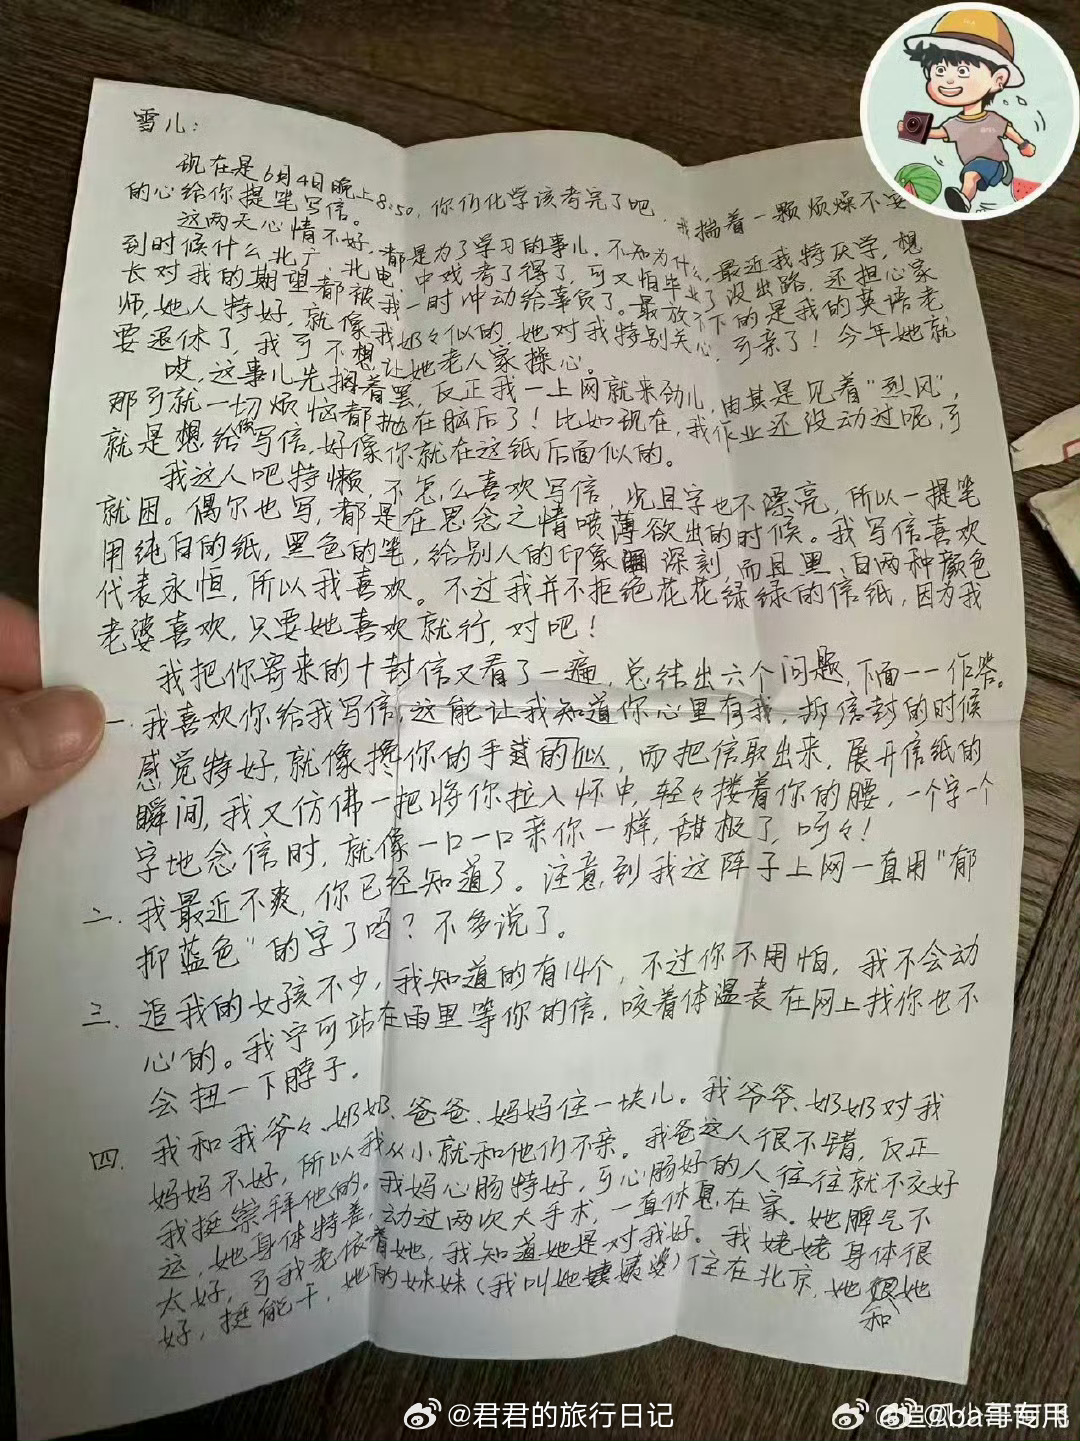 雪儿：
现在是6月4日晚上8:50，你们化学该考完了吧，我揣着一颗烦燥不安
的心给你提笔写信。
这两天心情不好，都是为了学习的事儿。不知为什么，最近我特厌学，想
到时候什么北广、北电、中戏考了得了，可又怕毕业了没出路，还担心家
长对我的期望都被我一时冲动给辜负了。最放不下的是我的英语老
师，她人特好，就像我奶々似的，她对我特别关心，可亲了！今年她就
要退休了，我可不想让她老人家操心。
哎，这事儿先搁着罢，反正我一上网就来劲儿，由其是见着“烈风”，
那可就一切烦恼都抛在脑后了！比如现在，我作业还没动过呢，可
就是想给你写信，好像你就在这纸后面似的。
我这人吧特懒，不怎么喜欢写信，况且字也不漂亮，所以一提笔
就困。偶尔也写，都是在思念之情喷薄欲出的时候。我写信喜欢
用纯白的纸，黑色的笔，给别人的印象深刻，而且黑、白两种颜色
代表永恒，所以我喜欢。不过我并不拒绝花花绿绿的信纸，因为我
老婆喜欢，只要她喜欢就行，对吧！
我把你寄来的十封信又看了一遍，总结出六个问题，下面一一作答。
一．我喜欢你给我写信，这能让我知道你心里有我，拆信封的时候
感觉特好，就像搀你的手的似，而把信取出来，展开信纸的
瞬间，我又仿佛一把将你拉入怀中，轻々搂着你的腰，一个字一个
字地念信时，就像一口一口亲你一样，甜极了，呵々！
二．我最近不爽，你已经知道了。注意到我这阵子上网一直用“郁
抑蓝色”的字了吗？不多说了。
三．追我的女孩不少，我知道的有14个，不过你不用怕，我不会动
心的。我宁可站在雨里等你的信，咬着体温表在网上找你也不
会扭一下脖子。
四．我和我爷々、奶奶、爸爸、妈妈住一块儿。我爷爷、奶奶对我
妈妈不好，所以我从小就和他们不亲。我爸这人很不错，反正
我挺崇拜他的。我妈心肠特好，可心肠好的人往往就不交好
运，她身体特差，动过两次大手术，一直休息在家。她脾气不
太好，可我老依着她，我知道她是对我好。我姥姥身体很
好，挺能干，她的妹妹（我叫她姨婆）住在北京，她和她
@君君的旅行日记